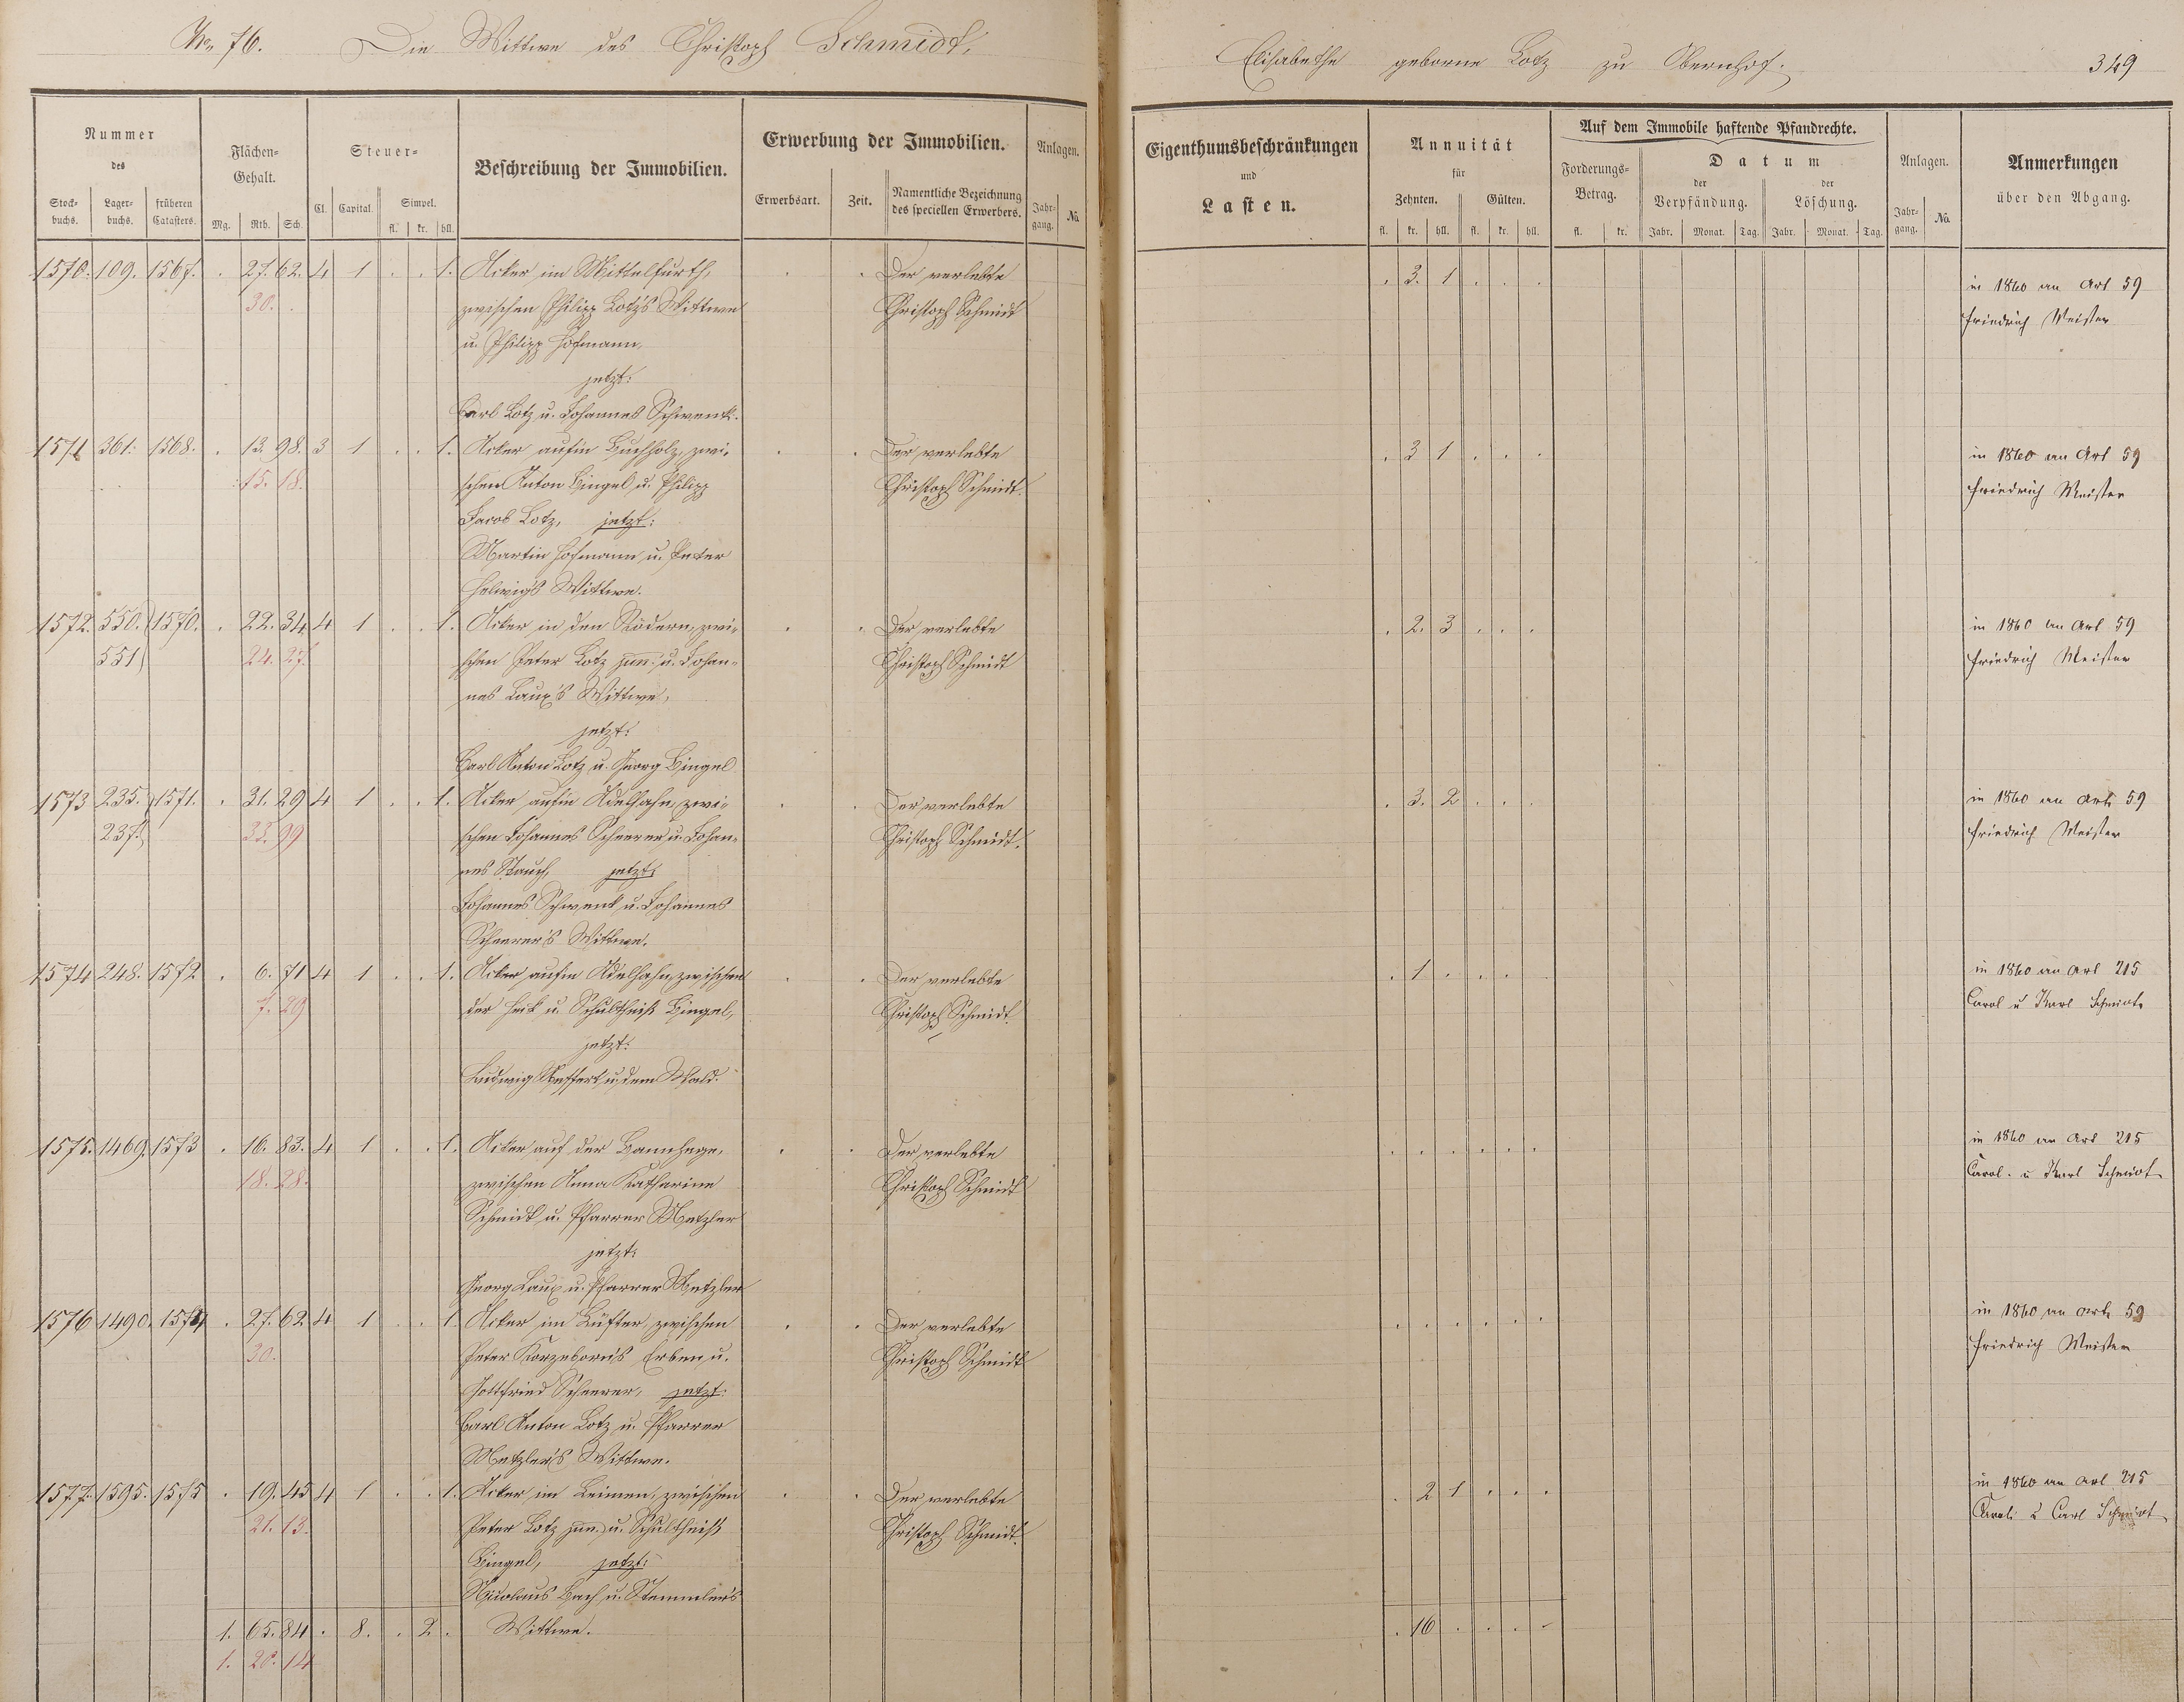 No. 76. Die Wittwe des Christoph Schmidt,
Elisabethe geborne Lotz zu Obernhof.
349
Nummer des
Stock-buchs. Lager-buchs. früheren Catasters.
Flächen-Gehalt.
Mg. Rth. Sch.
Steuer-
Cl. Capital. Simpel.
fl. kr. hll.
Beschreibung der Immobilien.
Erwerbung der Immobilien.
Erwerbsart. Zeit. Namentliche Bezeichnung des speciellen Erwerbers.
Anlagen.
Jahr-gang. No.
Eigenthumsbeschränkungen
und
Lasten.
Annuität
für
Zehnten. Gülten.
fl. kr. hll. fl. kr. hll.
Auf dem Immobile haftende Pfandrechte.
Forderungs-Betrag.
fl. kr.
Datum
der Verpfändung. der Löschung.
Jahr. Monat. Tag. Jahr. Monat. Tag.
Anlagen.
Jahr-gang. No.
Anmerkungen
über den Abgang.
1570. 109. 1567. . 27. 62. 4 1 . . 1. Acker im Mittelfurth, . . Der verlebte . 3. 1 . . . in 1860 an Art 59
30. . zwischen Philipp Lotz's Wittwe Christoph Schmidt Friedrich Meister
u. Philipp Hofmann,
jetzt:
Carl Lotz u. Johannes Schwenk.
1571 361. 1568. . 13. 98. 3 1 . . 1. Acker aufm Buchholz, zwi- . . Der verlebte . 3 1 . . . in 1860 an Art 59
15. 18. schen Anton Bingel u. Philipp Christoph Schmidt. Friedrich Meister
Jacob Lotz, jetzt:
Martin Hofmann u. Peter
Helwig's Wittwe.
1572. 550. 1570. . 22. 34 4 1 . . 1. Acker in den Rödern, zwi- . . Der verlebte . 2. 3 . . . in 1860 an Art 59
551 24. 27. schen Peter Lotz jun. u. Johan- Christoph Schmidt Friedrich Meister
nes Laux's Wittwe,
jetzt:
Carl Anton Lotz u. Georg Bingel
1573 235. 1571. . 31. 29 4 1 . . 1. Acker aufm Adelhahn, zwi- . . Der verlebte . 3. 2 . . . in 1860 an Art 59
237. 33. 99 schen Johannes Scheerer u. Johan- Christoph Schmidt. Friedrich Meister
nes Stauch, jetzt:
Johannes Schwenk u. Johannes
Scheerer's Wittwe.
1574 248. 1572 . 6. 71 4 1 . . 1. Acker aufm Adelhahn, zwischen . . Der verlebte . 1 . . . . in 1860 an Art 215
7. 29 der Heck u. Schultheiß Bingel, Christoph Schmidt. Carol u Karl Schmidt
jetzt:
Ludwig u. dem Wald.
1575. 1469. 1573 . 16. 83. 4 1 . . 1. Acker auf der Bannhege, . . Der verlebte . . . . . . in 1860 an Art 215
18. 28. zwischen Anna Katharine Christoph Schmidt Carol. u Karl Schmidt
Schmidt u. Pfarrer Metzler
jetzt:
Georg Laux u. Pfarrer Metzler
1576 1490. 1574 . 27. 62 4 1 . . 1. Acker im Lüfter, zwischen . . Der verlebte . . . . . . in 1860 an Art 59
30. Peter Korzeborn's Erben u. Christoph Schmidt Friedrich Meister
Gottfried Scheerer, jetzt:
Carl Anton Lotz u. Pfarrer
Metzler's Wittwe.
1577. 1595. 1575 . 19. 45 4 1 . . 1. Acker im Leimen, zwischen . . Der verlebte . 2 1 . . . in 1860 an Art 215
21. 13. Peter Lotz jun. u. Schultheiß Christoph Schmidt. u Carl Schmidt
Bingel, jetzt:
Nicolaus Bach u. Stemmler's
1. 65. 84 . 8. . 2 . Wittwe. . 16 . . . .
1. 80. 14